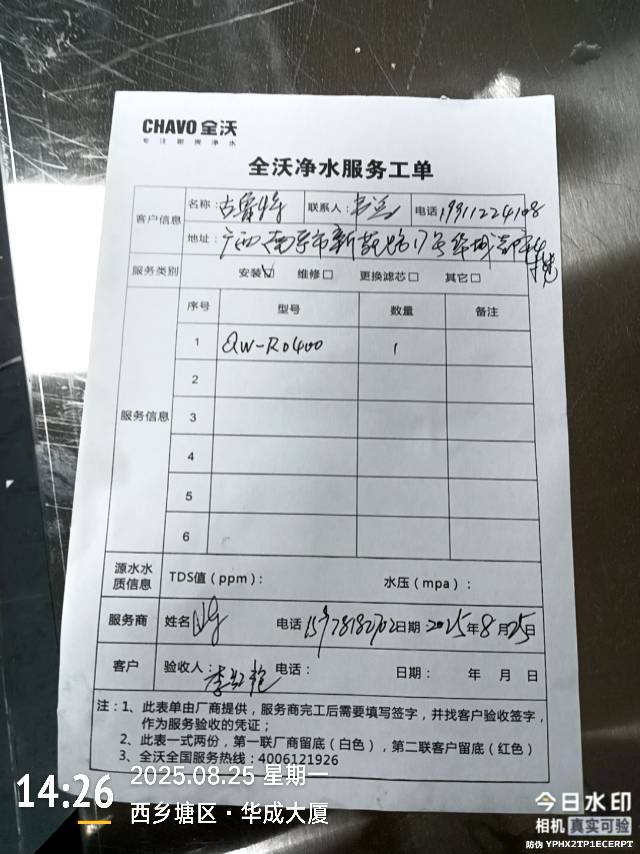 CHAVO 全沃
专注厨房净水
全沃净水服务工单
客户信息 名称： 联系人： 电话：19911224108
地址：广西南宁市新 路17号华成都
服务类别 安装☑ 维修□ 更换滤芯□ 其它□
服务信息 序号 型号 数量 备注
1 QW-RO400 1
2
3
4
5
6
源水水质信息 TDS值（ppm）： 水压（mpa）：
服务商 姓名 电话 15978182702 日期 2025年8月25日
客户 验收人：李 艳 电话： 日期： 年 月 日
注：1、此表单由厂商提供，服务商完工后需要填写签字，并找客户验收签字，
作为服务验收的凭证；
2、此表一式两份，第一联厂商留底（白色），第二联客户留底（红色）
3、全沃全国服务热线：4006121926
14:26
2025.08.25 星期一
西乡塘区·华成大厦
今日水印
相机 真实可验
防伪 YPHX2TP1ECERPT